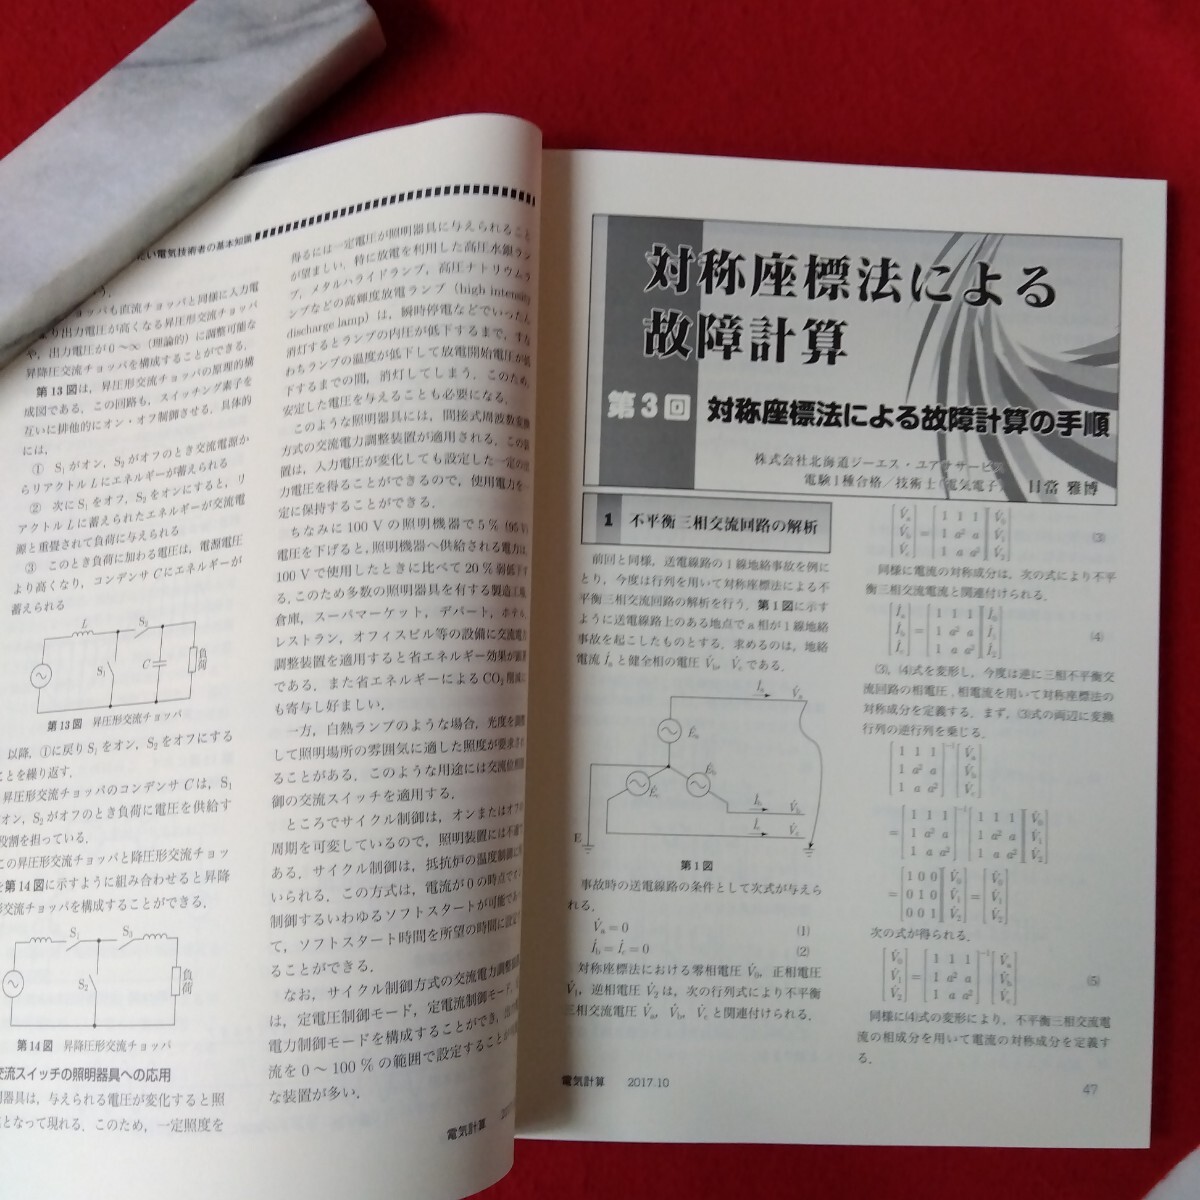 たい電気技術者の基本知識
ョッパも直流チョッパと同様に入力電
より出力電圧が高くなる昇圧形交流チョッパ
や，出力電圧が0～∞（理論的）に調整可能な
昇降圧交流チョッパを構成することができる．
第13図は，昇圧形交流チョッパの原理的構
成図である．この回路も，スイッチング素子を
互いに排他的にオン・オフ制御させる．具体的
には，
① S₁がオン，S₂がオフのとき交流電源か
らリアクトルLにエネルギーが蓄えられる
② 次にS₁をオフ，S₂をオンにすると，リ
アクトルLに蓄えられたエネルギーが交流電
源と重畳されて負荷に与えられる
③ このとき負荷に加わる電圧は，電源電圧
より高くなり，コンデンサCにエネルギーが
蓄えられる
L
S₂
S₁
C
負荷
第13図 昇圧形交流チョッパ
以降，①に戻りS₁をオン，S₂をオフにする
ことを繰り返す．
昇圧形交流チョッパのコンデンサCは，S₁
オン，S₂がオフのとき負荷に電圧を供給す
役割を担っている．
この昇圧形交流チョッパと降圧形交流チョッ
を第14図に示すように組み合わせると昇降
形交流チョッパを構成することができる．
S₁
S₃
S₂
負荷
第14図 昇降圧形交流チョッパ
交流スイッチの照明器具への応用
明器具は，与えられる電圧が変化すると照
となって現れる．このため，一定照度を
得るには一定電圧が照明器具に与えられること
が望ましい．特に放電を利用した高圧水銀ラン
プ，メタルハライドランプ，高圧ナトリウムラ
ンプなどの高輝度放電ランプ（high intensity
discharge lamp）は，瞬時停電などでいったん
消灯するとランプの内圧が低下するまで，すな
わちランプの温度が低下して放電開始電圧が低
下するまでの間，消灯してしまう．このため，
安定した電圧を与えることも必要になる．
このような照明器具には，間接式周波数変換
方式の交流電力調整装置が適用される．この装
置は，入力電圧が変化しても設定した一定の出
力電圧を得ることができるので，使用電力を一
定に保持することができる．
ちなみに100 Vの照明機器で5％（95 V）
電圧を下げると，照明機器へ供給される電力は，
100 Vで使用したときに比べて20％弱低下す
る．このため多数の照明器具を有する製造工場，
倉庫，スーパーマーケット，デパート，ホテル，
レストラン，オフィスビル等の設備に交流電力
調整装置を適用すると省エネルギー効果が顕著
である．また省エネルギーによるCO₂削減に
も寄与し好ましい．
一方，白熱ランプのような場合，光度を調整
して照明場所の雰囲気に適した照度が要求され
ることがある．このような用途には交流位相制
御の交流スイッチを適用する．
ところでサイクル制御は，オンまたはオフの
周期を可変しているので，照明装置には不適で
ある．サイクル制御は，抵抗炉の温度制御に用
いられる．この方式は，電流が0の時点でオン
制御するいわゆるソフトスタートが可能であっ
て，ソフトスタート時間を所望の時間に設定す
ることができる．
なお，サイクル制御方式の交流電力調整装置
は，定電圧制御モード，定電流制御モード，定
電力制御モードを構成することができ，出力電
流を0～100％の範囲で設定することが可能
な装置が多い．
電気計算 201
対称座標法による
故障計算
第3回 対称座標法による故障計算の手順
株式会社北海道ジーエス・ユアササービス
電験1種合格／技術士（電気電子） 日當 雅博
1 不平衡三相交流回路の解析
前回と同様，送電線路の1線地絡事故を例に
とり，今度は行列を用いて対称座標法による不
平衡三相交流回路の解析を行う．第1図に示す
ように送電線路上のある地点でa相が1線地絡
事故を起こしたものとする．求めるのは，地絡
電流İₐと健全相の電圧V̇b，V̇cである．
İₐ V̇ₐ
Ėₐ
Ėc Ėb
İb V̇b
İc V̇c
E
第1図
事故時の送電線路の条件として次式が与えら
れる．
V̇ₐ＝0 (1)
İb＝İc＝0 (2)
対称座標法における零相電圧V̇₀，正相電圧
V̇₁，逆相電圧V̇₂は，次の行列式により不平衡
三相交流電圧V̇ₐ，V̇b，V̇cと関連付けられる．
[V̇ₐ] [1 1 1][V̇₀]
[V̇b]＝[1 a² a][V̇₁] (3)
[V̇c] [1 a a²][V̇₂]
同様に電流の対称成分は，次の式により不平
衡三相交流電流と関連付けられる．
[İₐ] [1 1 1][İ₀]
[İb]＝[1 a² a][İ₁] (4)
[İc] [1 a a²][İ₂]
(3)，(4)式を変形し，今度は逆に三相不平衡交
流回路の相電圧，相電流を用いて対称座標法の
対称成分を定義する．まず，(3)式の両辺に変換
行列の逆行列を乗じる．
[1 1 1]⁻¹[V̇ₐ]
[1 a² a] [V̇b]
[1 a a²] [V̇c]
[1 1 1]⁻¹[1 1 1][V̇₀]
＝[1 a² a] [1 a² a][V̇₁]
[1 a a²] [1 a a²][V̇₂]
[1 0 0][V̇₀] [V̇₀]
＝[0 1 0][V̇₁]＝[V̇₁]
[0 0 1][V̇₂] [V̇₂]
次の式が得られる．
[V̇₀] [1 1 1]⁻¹[V̇ₐ]
[V̇₁]＝[1 a² a] [V̇b] (5)
[V̇₂] [1 a a²] [V̇c]
同様に(4)式の変形により，不平衡三相交流電
流の相成分を用いて電流の対称成分を定義す
る．
電気計算 2017.10
47